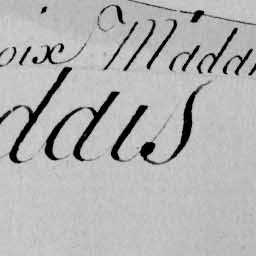 oix Madan
ddis